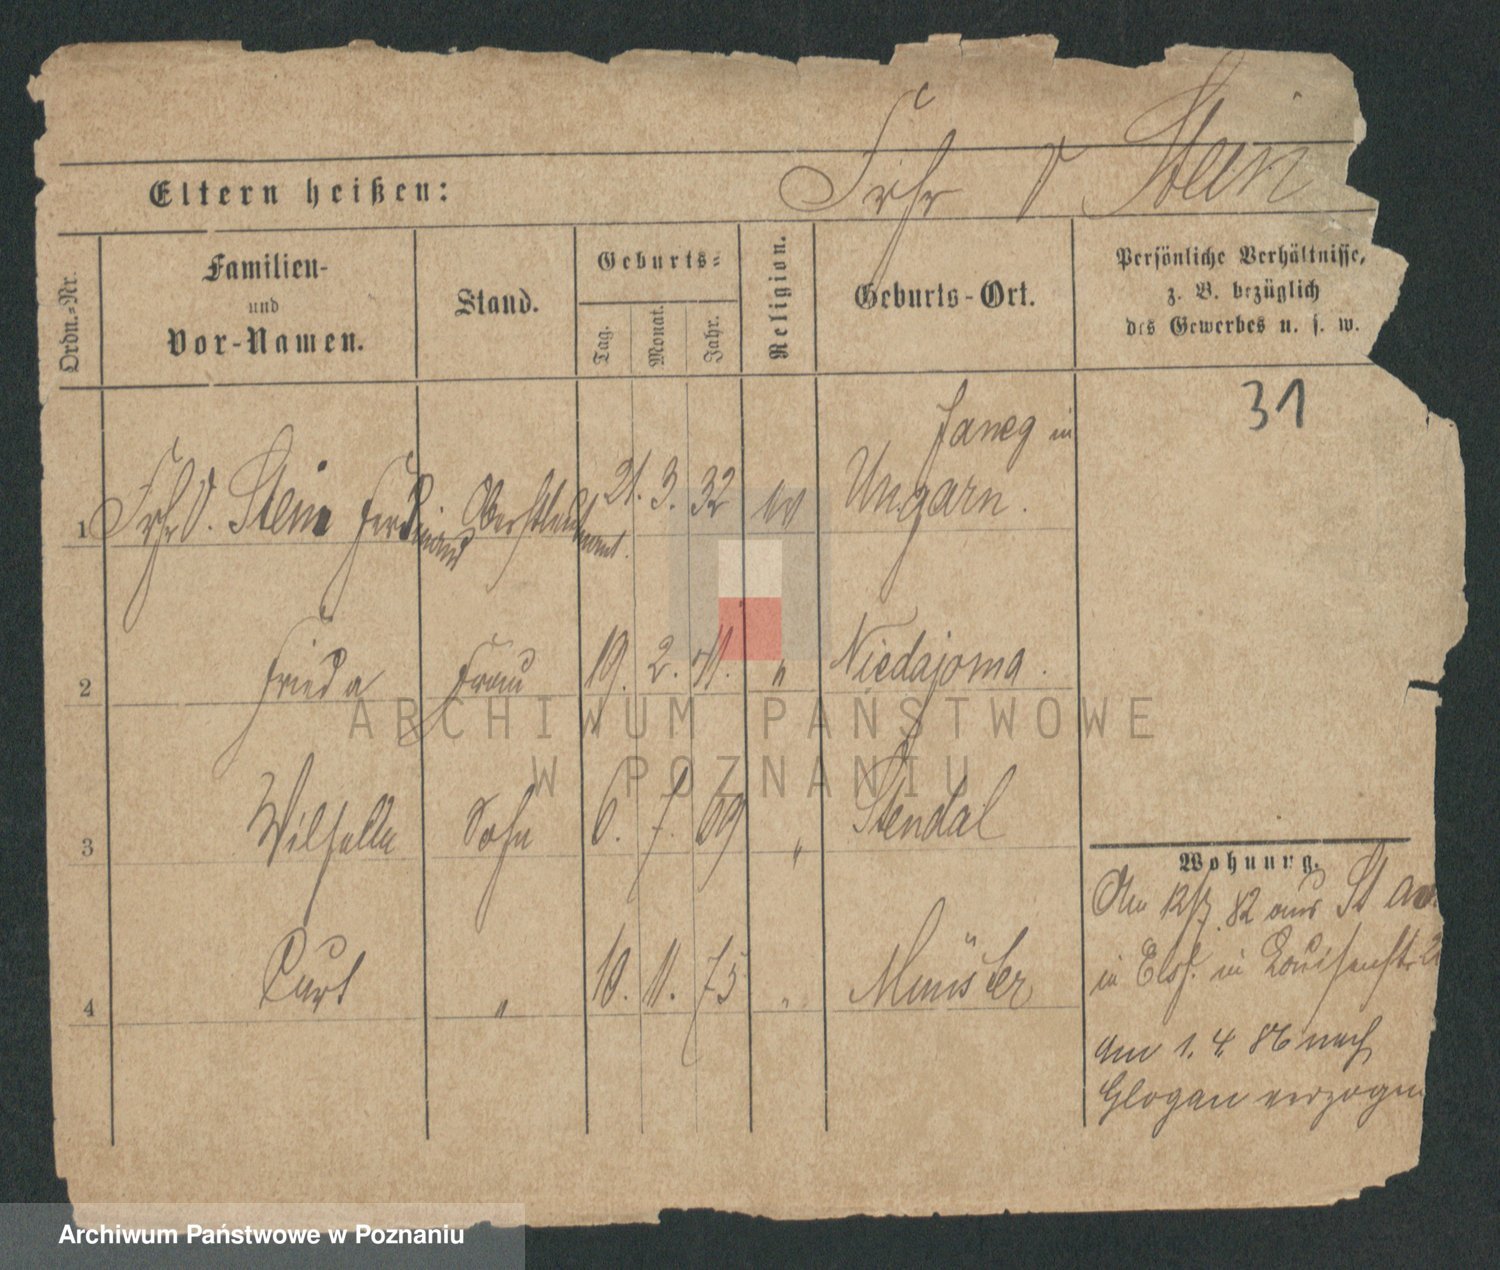 Frhr v Stein
Eltern heißen:
Ordn.-Nr.
Familien-
und
Vor-Namen.
Stand.
Geburts-
Tag.
Monat.
Jahr.
Religion.
Geburts-Ort.
Persönliche Verhältnisse,
z. B. bezüglich
des Gewerbes u. s. w.
31
1 Frhr v. Stein Ferdinand Oberstleutnant. 21. 3. 32 ev Janeg in Ungarn.
2 Frieda Frau 19. 2. 41. " Niedajoma.
3 Wilhelm Sohn 6. 7. 69 " Stendal
4 Curt " 10. 11. 75 " Münster
Wohnung.
Am 12/7. 82 aus St
in Els. in Louisenstr. 2
am 1. 4. 86 nach
Glogau verzogen
ARCHIWUM PAŃSTWOWE
W POZNANIU
Archiwum Państwowe w Poznaniu